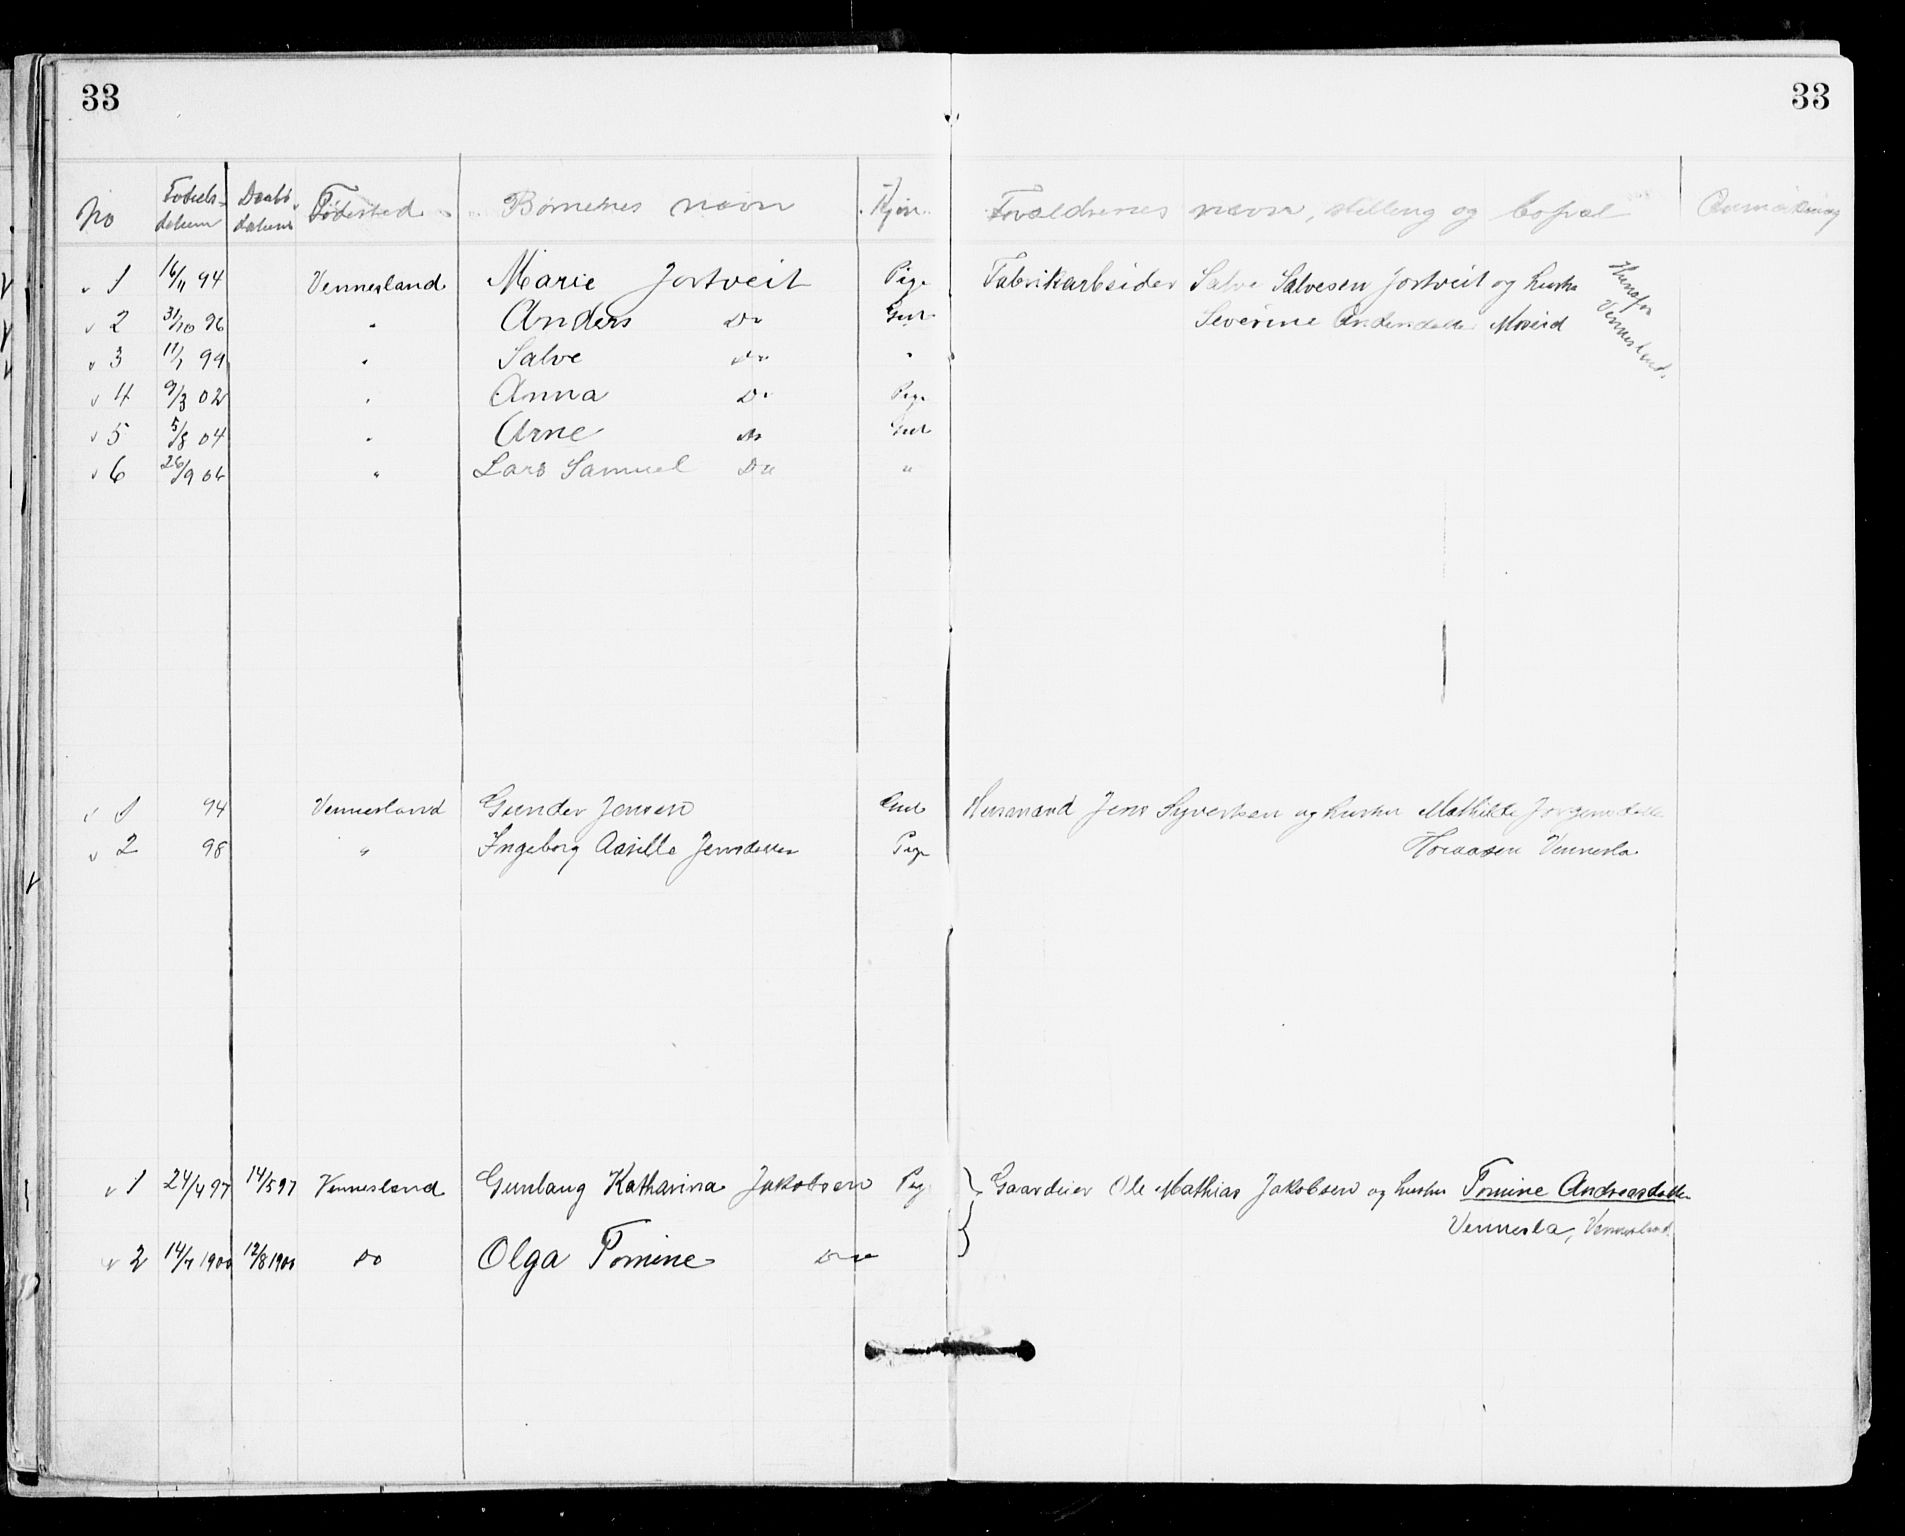 33 33
No Fødsels- Daabs- Fødested Børnenes navn Kjøn Forældrenes navn, stilling og bopæl Anmærkning
datum datum
v 1 16/11 94 Vennesland Marie Jortveit Pige Fabrikarbeider Salve Salvesen Jortveit og hustru
v 2 31/10 96 " Anders Do Gut Severine Andersdatter Moseid
Vennesland.
v 3 11/7 99 " Salve Do "
v 4 9/3 02 " Anna Do Pige
v 5 5/8 04 " Arne Do Gut
v 6 26/9 06 " Lars Samuel Do "
v 1 94 Vennesland Gunder Jensen Gut Husmand Jens Syvertsen og hustru Mathilde Jörgensdatter
v 2 98 " Ingeborg Aasille Jensdatter Pige Vennesla
v 1 24/4 97 14/5 97 Vennesland Gunlaug Katharina Jakobsen Pig } Gaardeier Ole Mathias Jakobsen og hustru Tomine Andreasdatter
Vennesla, Vennesland.
v 2 14/7 1900 12/8 1900 do Olga Tomine Do }